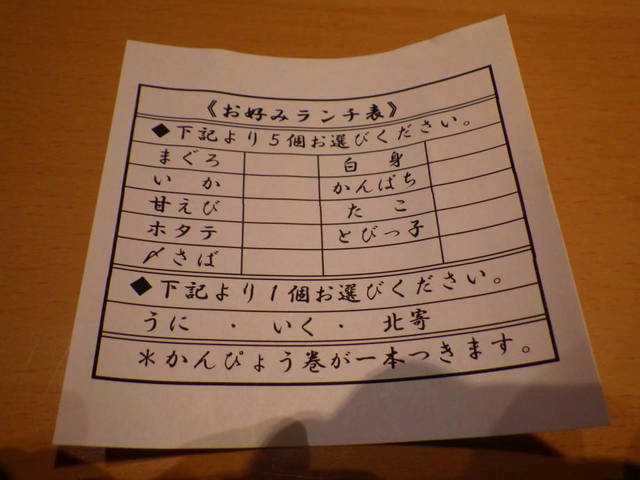 《お好みランチ表》
◆下記より5個お選びください。
まぐろ 白身
いか かんぱち
甘えび たこ
ホタテ とびっ子
〆さば
◆下記より1個お選びください。
うに ・ いく・ 北寄
＊かんぴょう巻が一本つきます。